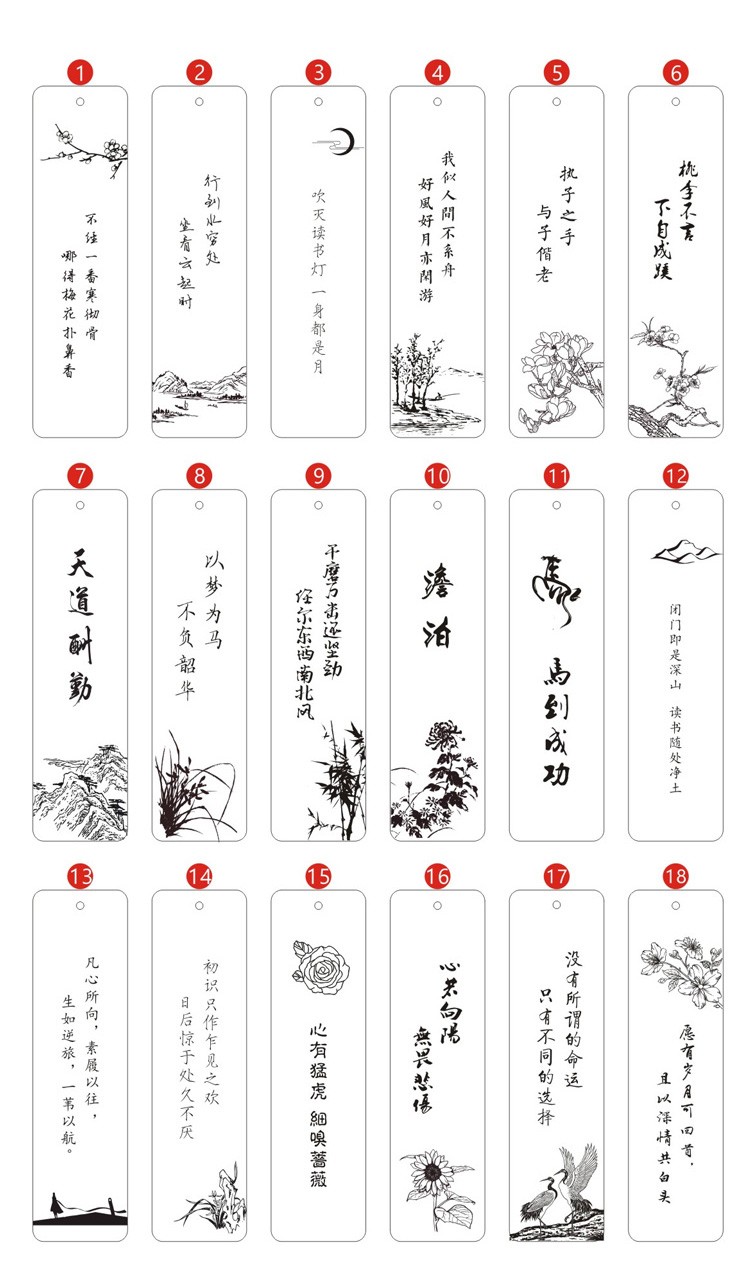 1
不经一番寒彻骨
哪得梅花扑鼻香
2
行到水穷处
坐看云起时
3
吹灭读书灯 一身都是月
4
我似人間不系舟
好風好月亦閑游
5
执子之手
与子偕老
6
桃李不言
下自成蹊
7
天道酬勤
8
以梦为马
不负韶华
9
千磨万击还坚劲
任尔东西南北风
10
澹泊
11
馬
馬到成功
12
闭门即是深山 读书随处净土
13
凡心所向，素履以往，
生如逆旅，一苇以航。
14
初识只作乍见之欢
日后惊于处久不厌
15
心有猛虎 細嗅薔薇
16
心若向陽
無畏悲傷
17
没有所谓的命运
只有不同的选择
18
愿有岁月可回首，
且以深情共白头